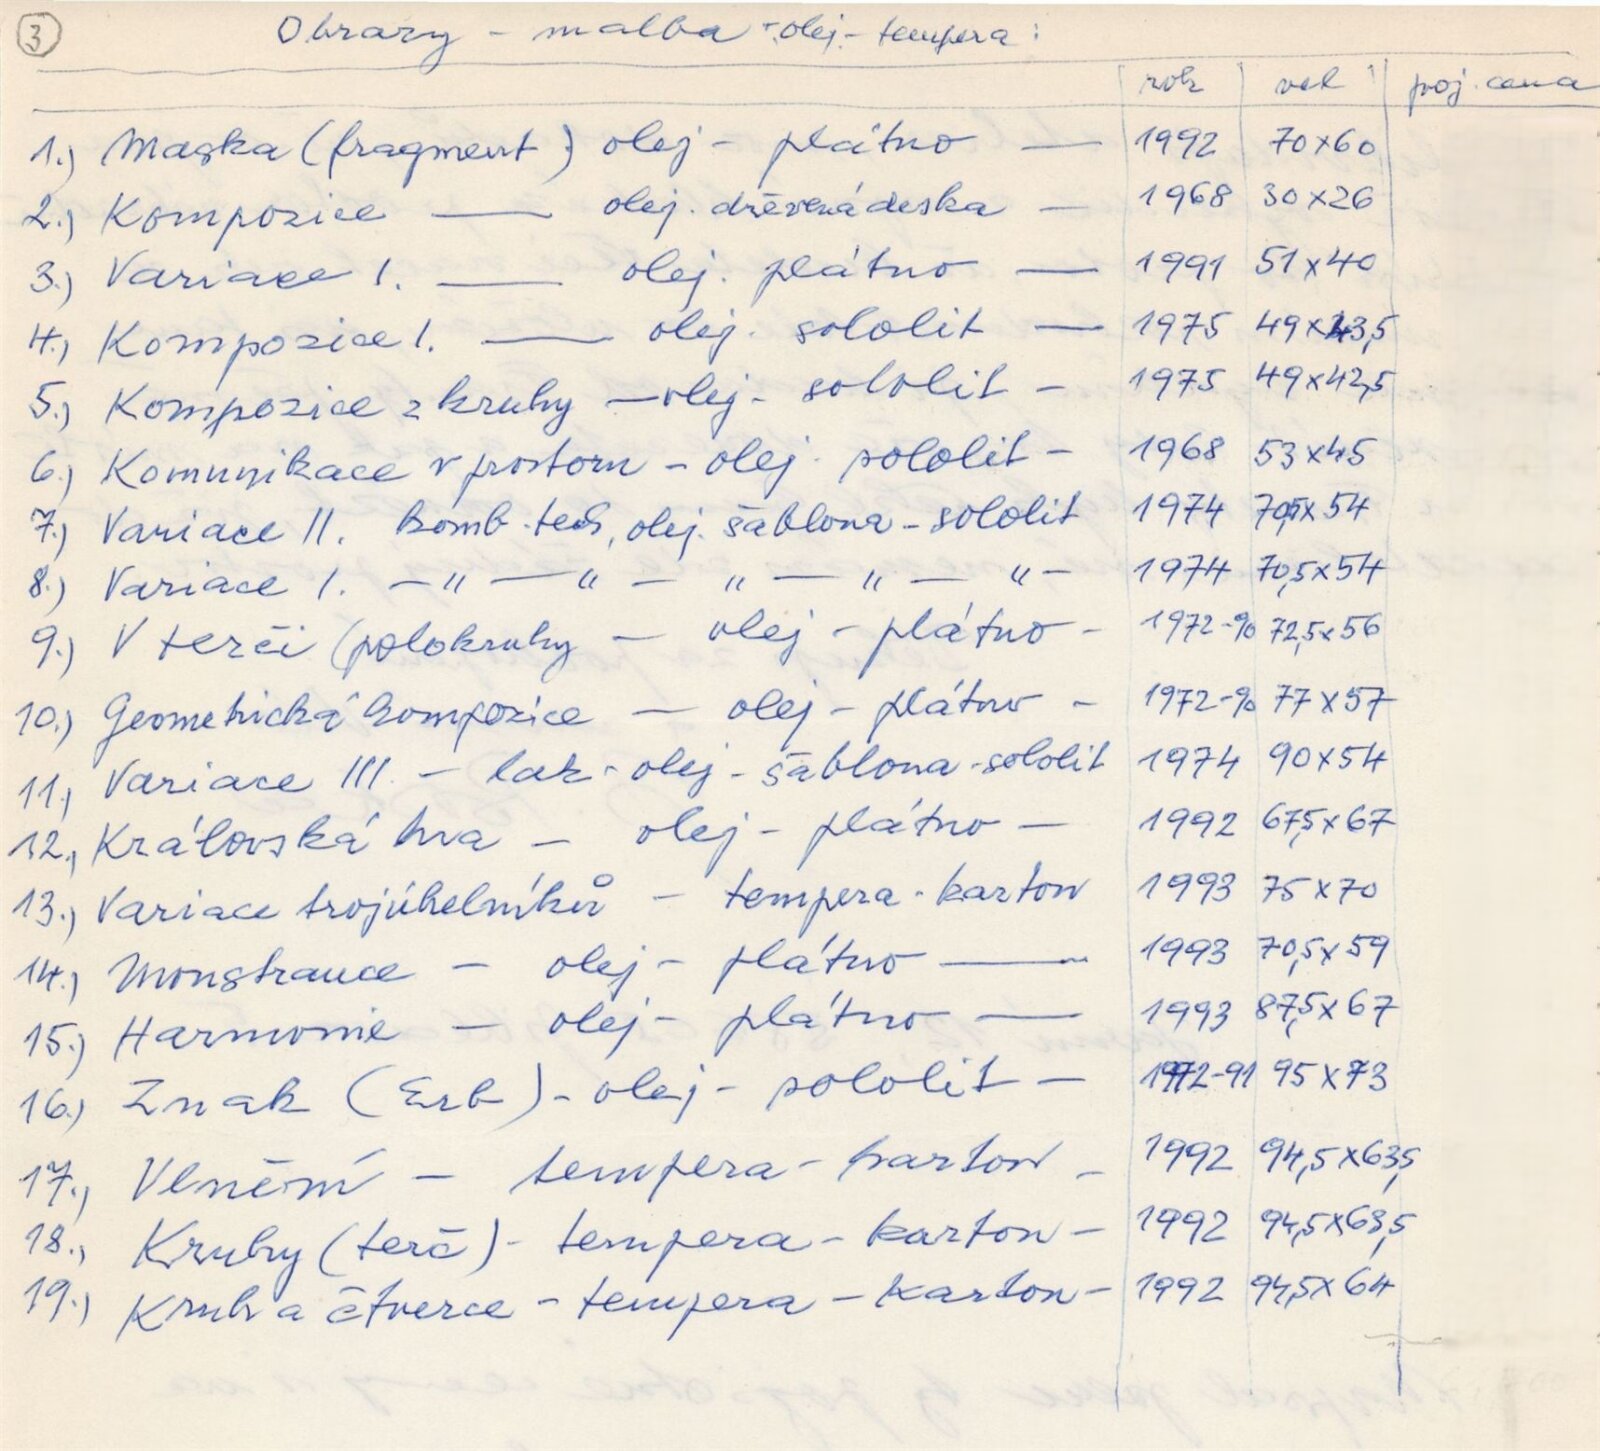 3 Obrazy - malba - olej - tempera:
rok vel poj. cena
1.) Maska (fragment) olej - plátno — 1992 70x60
2.) Kompozice — olej. dřevená deska — 1968 30x26
3.) Variace I. — olej. plátno — 1991 51x40
4.) Kompozice I. — olej. sololit — 1975 49x43,5
5.) Kompozice z kruhy — olej - sololit - 1975 49x42,5
6.) Komunikace v prostoru - olej - sololit - 1968 53x45
7.) Variace II. komb. tech, olej. šablona - sololit 1974 70,5x54
8.) Variace I. — " — " — " — " — " - 1974 70,5x54
9.) V terči (polokruhy — olej - plátno - 1972-90 72,5x56
10.) Geometrická kompozice — olej - plátno - 1972-90 77x57
11.) Variace III. - lak - olej - šablona - sololit 1974 90x54
12.) Královská hra - olej - plátno - 1992 67,5x67
13.) Variace trojúhelníků - tempera - karton 1993 75x70
14.) Monstrance - olej - plátno — 1993 70,5x59
15.) Harmonie — olej - plátno — 1993 87,5x67
16.) Znak (Erb) - olej - sololit - 1972-91 95x73
17.) Vlnění - tempera - karton - 1992 94,5x63,5
18.) Kruhy (terč) - tempera - karton - 1992 94,5x63,5
19.) Kruh a čtverce - tempera - karton - 1992 94,5x64